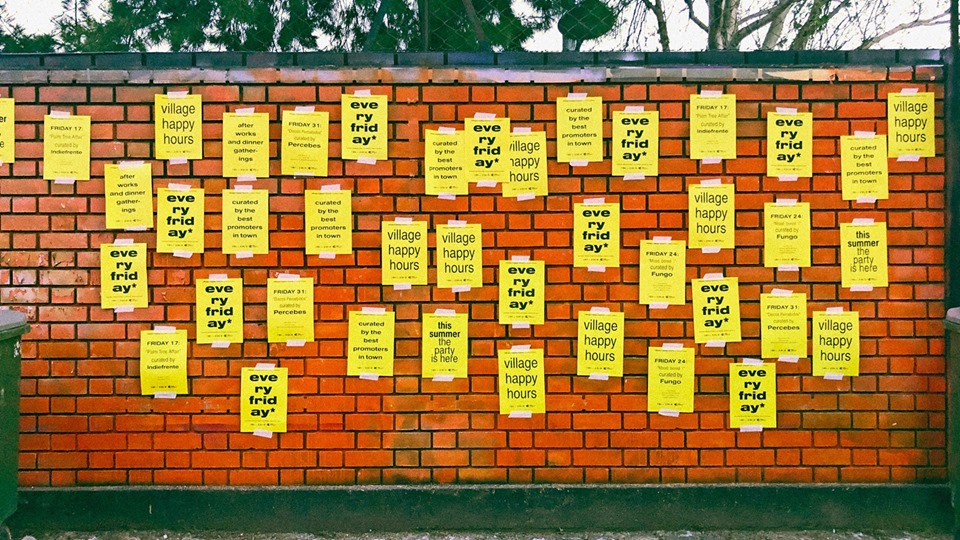 er
FRIDAY 17:
curated by
Indiefrente
village
happy
hours
after
works and
dinner
gather-
ings
FRIDAY 31:
curated by
Percebes
eve
ry
frid
ay*
curated
by the
best
promoters
in town
eve
ry
frid
ay*
village
happy
hours
curated
by the
best
promoters
in town
eve
ry
frid
ay*
FRIDAY 17:
curated by
Indiefrente
eve
ry
frid
ay*
curated
by the
best
promoters
in town
village
happy
hours
after
works and
dinner
gather-
ings
eve
ry
frid
ay*
curated
by the
best
promoters
in town
curated
by the
best
promoters
in town
village
happy
hours
village
happy
hours
eve
ry
frid
ay*
village
happy
hours
FRIDAY 24:
curated by
Fungo
this
summer
the
party
is here
eve
ry
frid
ay*
eve
ry
frid
ay*
FRIDAY 31:
curated by
Percebes
eve
ry
frid
ay*
FRIDAY 24:
curated by
Fungo
eve
ry
frid
ay*
FRIDAY 31:
curated by
Percebes
FRIDAY 17:
curated by
Indiefrente
curated
by the
best
promoters
in town
this
summer
the
party
is here
village
happy
hours
village
happy
hours
eve
ry
frid
ay*
village
happy
hours
FRIDAY 24:
curated by
Fungo
eve
ry
frid
ay*